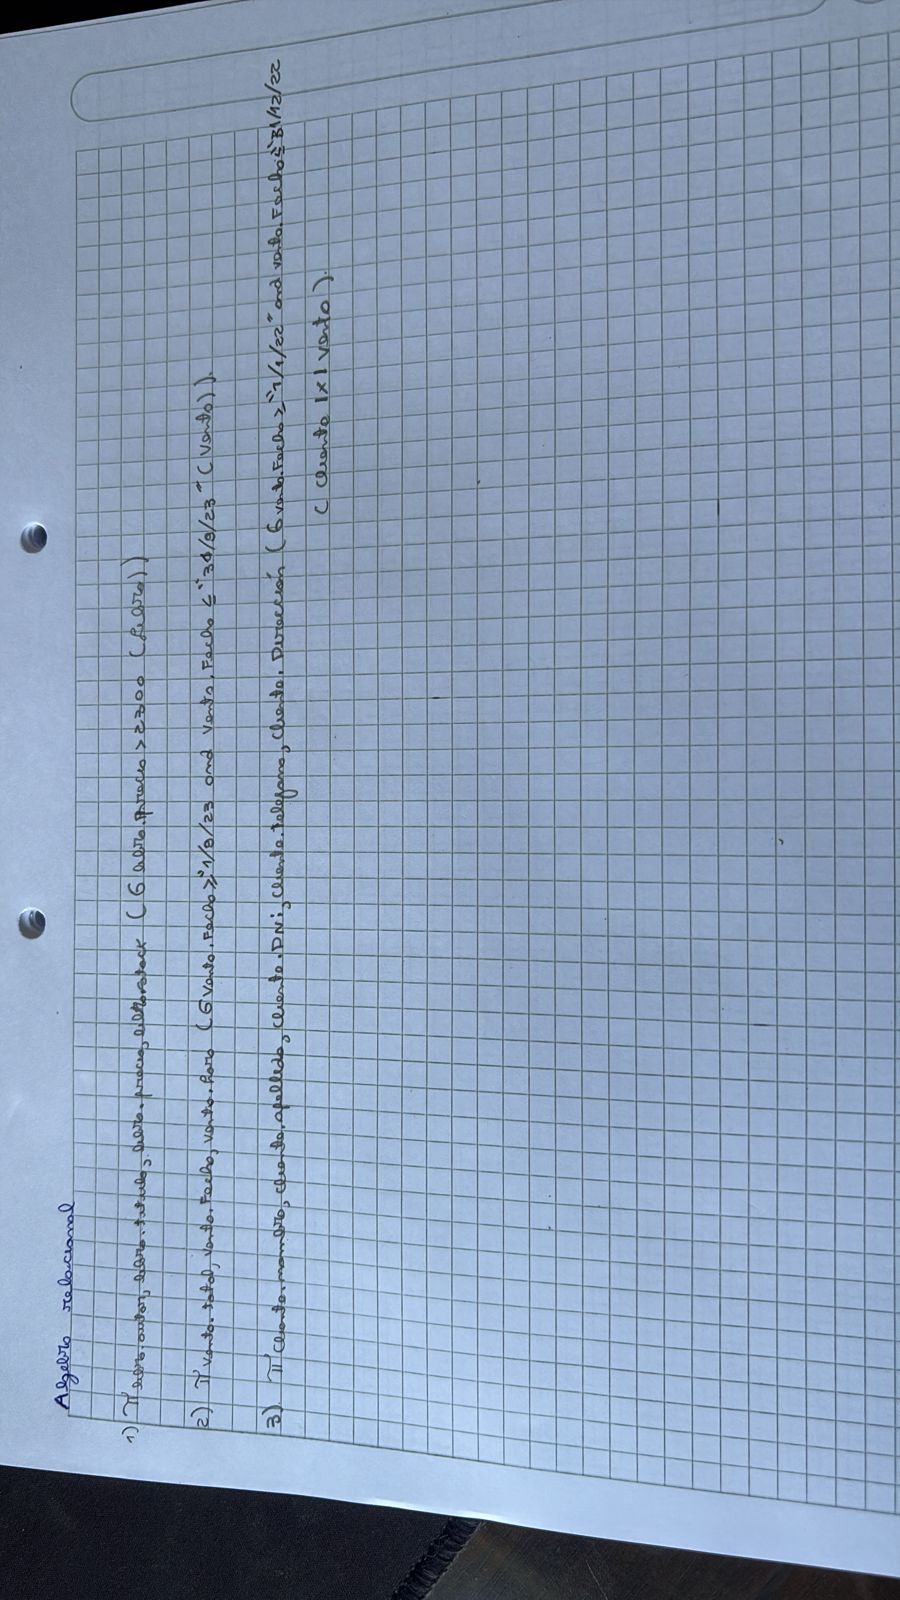 Algebra relacional
1) π libro.autor, libro.titulo, libro.precio, libro.stock (σ libro.precio > 2300 (Libro))
2) π Venta.total, Venta.Fecha, Venta.hora (σ Venta.Fecha ≥ "1/9/23 and Venta.Fecha ≤ "30/9/23" (Venta)).
3) π Cliente.nombre, cliente.apellido, cliente.DNi, cliente.telefono, cliente.Dirección (σ venta.Fecha ≥ "1/1/22" and venta.Fecha ≤ "31/12/22
(cliente |x| venta).